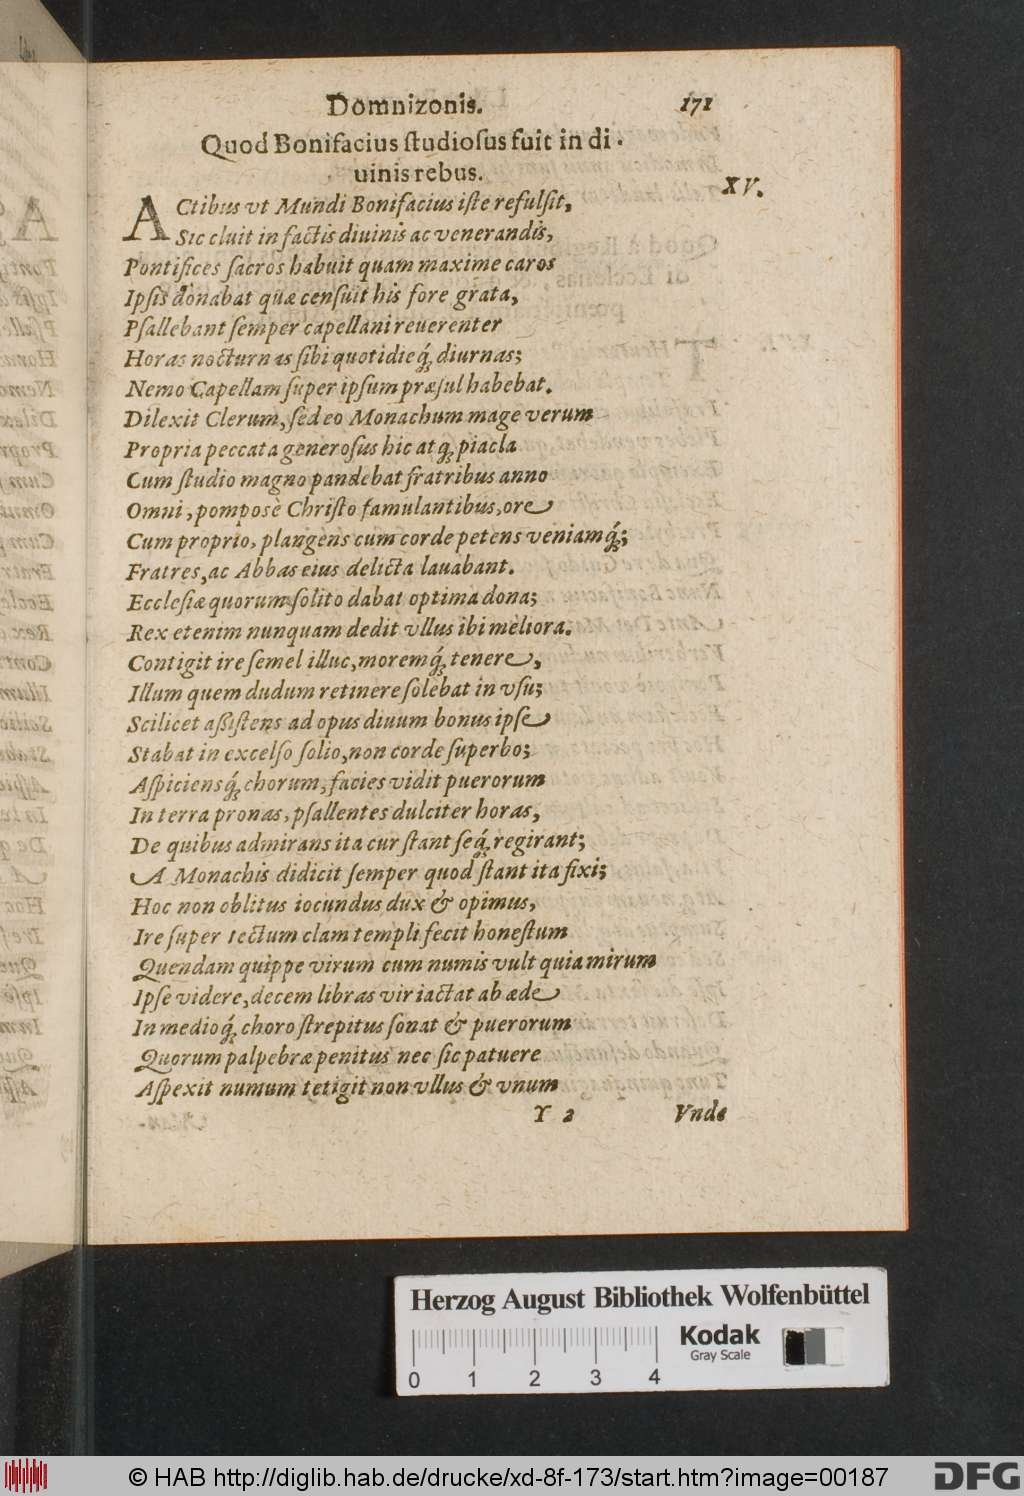 Domnizonis. 171
Quod Bonifacius ſtudioſus fuit in di-
uinis rebus.
XV.
ACtibus vt Mundi Bonifacius iſte refulſit,
Sic cluit in factis diuinis ac venerandis,
Pontifices ſacros habuit quam maxime caros
Ipſis donabat quæ cenſuit his fore grata,
Pſallebant ſemper capellani reuerenter
Horas nocturnas ſibi quotidieq́; diurnas;
Nemo Capellam ſuper ipſum præſul habebat.
Dilexit Clerum, ſed eo Monachum mage verum
Propria peccata generoſus hic atq; piacla
Cum ſtudio magno pandebat fratribus anno
Omni, pomposè Chriſto famulantibus, ore
Cum proprio, plangens cum corde petens veniamq́;;
Fratres, ac Abbas eius delicta lauabant.
Eccleſiæ quorum ſolito dabat optima dona;
Rex etenim nunquam dedit vllus ibi meliora.
Contigit ire ſemel illuc, moremq́; tenere,
Illum quem dudum retinere ſolebat in vſu;
Scilicet aſſiſtens ad opus diuum bonus ipſe
Stabat in excelſo ſolio, non corde ſuperbo;
Aſpiciensq́; chorum, facies vidit puerorum
In terra pronas, pſallentes dulciter horas,
De quibus admirans ita cur ſtant ſeq́; regirant;
A Monachis didicit ſemper quod ſtant ita fixi;
Hoc non oblitus iocundus dux & opimus,
Ire ſuper tectum clam templi fecit honeſtum
Quendam quippe virum cum numis vult quia mirum
Ipſe videre, decem libras vir iactat ab æde
In medioq́; choro ſtrepitus ſonat & puerorum
Quorum palpebræ penitus nec ſic patuere
Aſpexit numum tetigit non vllus & vnum
Y 2 Vnde
Herzog August Bibliothek Wolfenbüttel
Kodak
Gray Scale
0 1 2 3 4
© HAB http://diglib.hab.de/drucke/xd-8f-173/start.htm?image=00187
DFG